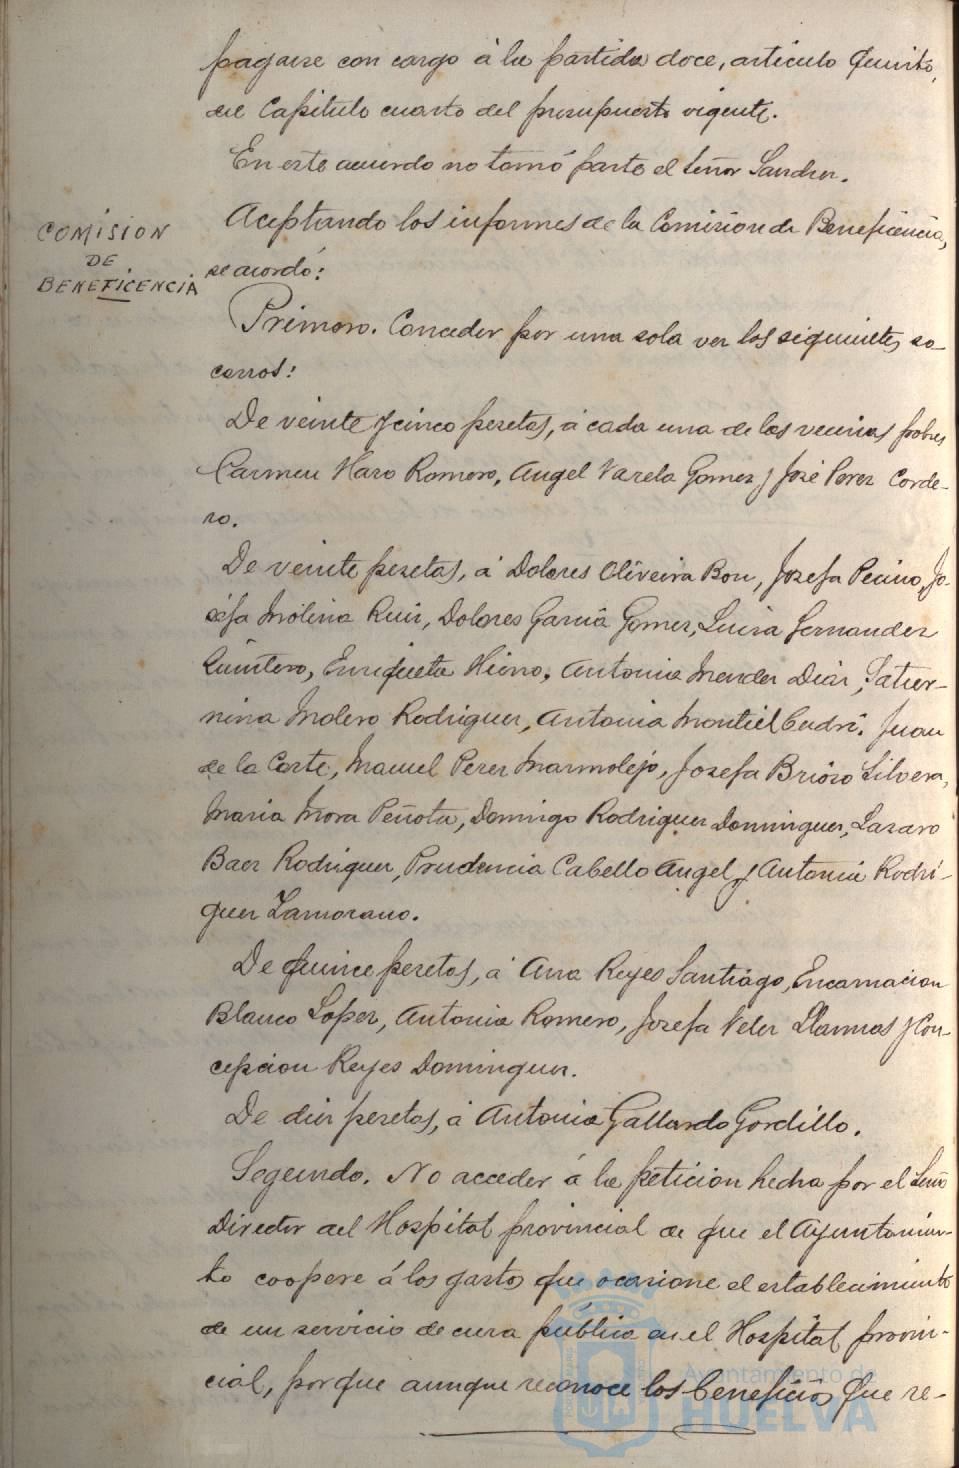 pagarse con cargo á la partida doce, articulo Quinto,
del Capitulo cuarto del presupuesto vigente.
En este acuerdo no tomó parte el señor Sanchez.
COMISION
DE
BENEFICENCIA
Aceptando los informes de la Comision de Beneficencia,
se acordó:
Primero. Conceder por una sola vez los siguientes so-
corros:
De veinte y cinco pesetas, á cada una de los vecinos pobres
Carmen Haro Romero, Angel Varela Gomez y José Perez Corde-
ro.
De veinte pesetas, á Dolores Oliveira Bon, Josefa Pecino, Jo-
sefa Molina Ruiz, Dolores Garcia Gomez, Luisa Fernandez
Quintero, Enriqueta Hierro, Antonia Mendez Diaz, Satur-
nina Molero Rodriguez, Antonia Montiel Cudri, Juan
de la Corte, Manuel Perez Marmolejo, Josefa Brioso Silvera,
Maria Mora Peñota, Domingo Rodriguez Dominguez, Lazaro
Baez Rodriguez, Prudencia Cabello Angel y Antonia Rodri-
guez Zamorano.
De quince pesetas, á Ana Reyes Santiago, Encarnacion
Blanco Lopez, Antonia Romero, Josefa Velez Llamas y Con-
cepcion Reyes Dominguez.
De diez pesetas, á Antonia Gallardo Gordillo.
Segundo. No acceder á la peticion hecha por el Señor
Director del Hospital provincial de que el Ayuntamien-
to coopere á los gastos que ocasione el establecimiento
de un servicio de cura pública en el Hospital provin-
cial, porque aunque reconoce los beneficios que re-
Ayuntamiento de
HUELVA